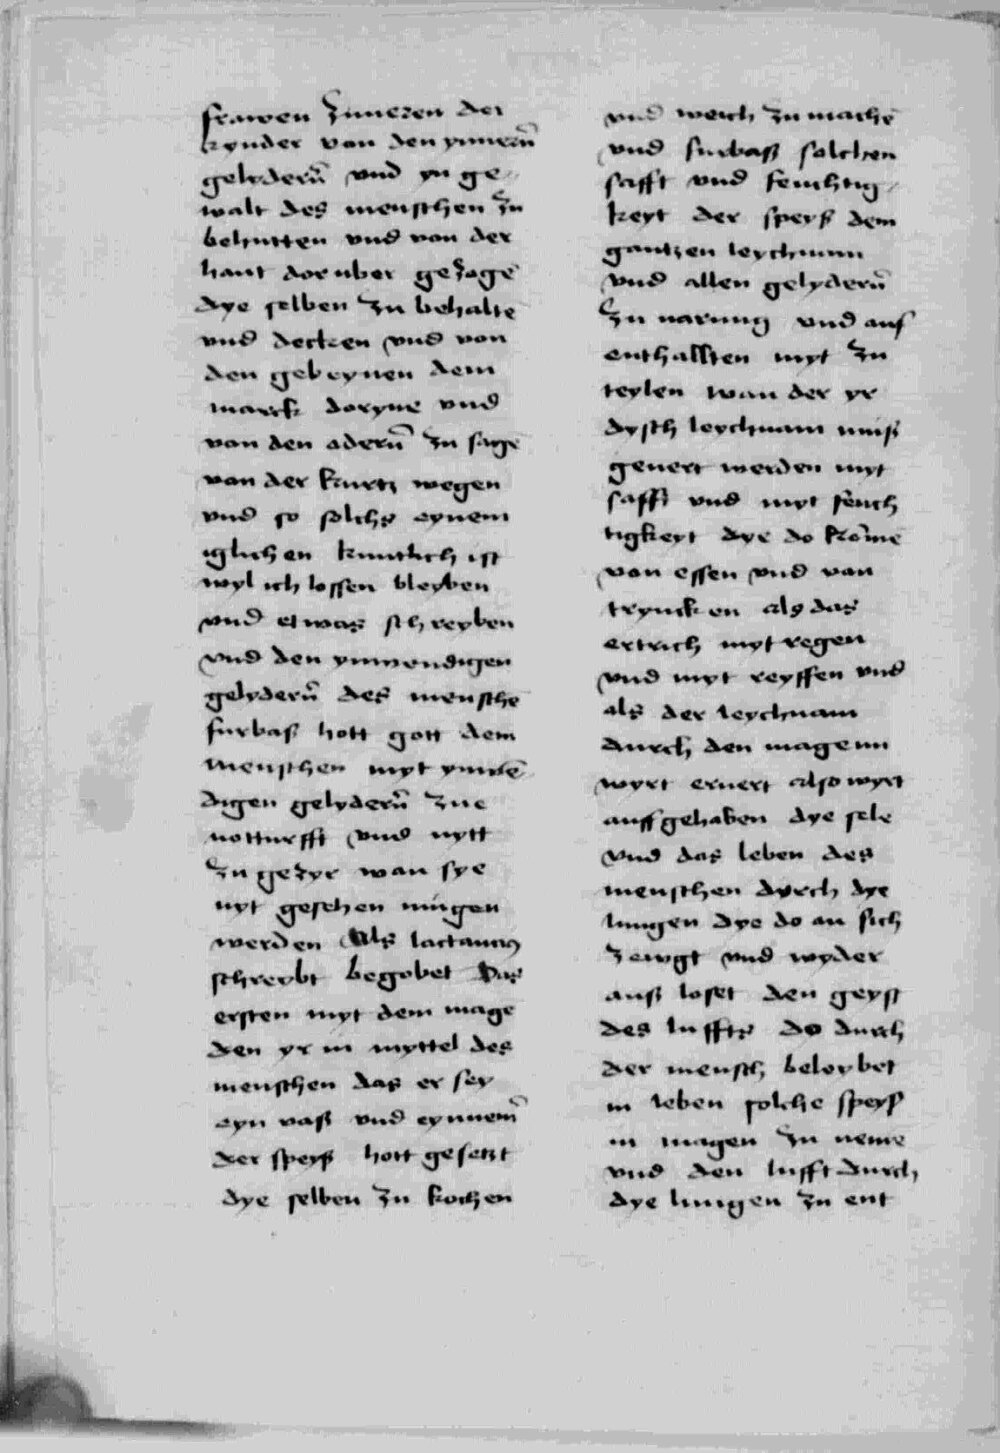 frawen zuneren der
kynder von den ynnern̄
gelydern̄ vnd yn ge-
walt des menschen zu
behutten vnd von der
haut doruber gezogē
dye selben zu behaltē
vnd decken vnd von
den gebeynen dem
marck doryne vnd
von den odern̄ zu sagē
von der kurtz wegen
vnd so solchs eynem
iglichen kuntlich ist
wyl ich lossen bleyben
vnd etwas schreyben
vnd den ynwendigen
gelydern̄ des menschē
furbaß hott gott dem
menschen myt ynwē-
digen gelydern̄ zue
notturfft vnd nytt
zu gezyr wan sye
nyt gesehen mugen
werden Als lactancius
schreybt begobet Das
ersten myt dem magē
den yr in myttel des
menschen das er sey
eyn vaß vnd eynnem̄
der speyß hott gesetzt
dye selben zu kochen
vnd weich zu machē
vnd furbaß solchen
safft vnd feuchtig-
keyt der speyß dem
gantzen leychnam
vnd allen gelydern̄
zu narung vnd auf
enthallten myt zu
teylen wan der yr
dysch leychnam muß
genert werden myt
safft vnd myt feuch
tigkeyt dye do kom̄e
von essen vnd von
tryncken als das
ertrich myt regen
vnd myt reyffen vnd
als der leychnam
durch den magenn
wyrt ernert also wyrt
auffgehaben dye sele
vnd das leben des
menschen durch dye
lungen dye do an sich
zewgt vnd wyder
auß loset den geyst
des luffts do durch
der mensch beleybet
in leben solche speyß
in magen zu neme
vnd den lufft durch
dye lungen zu ent